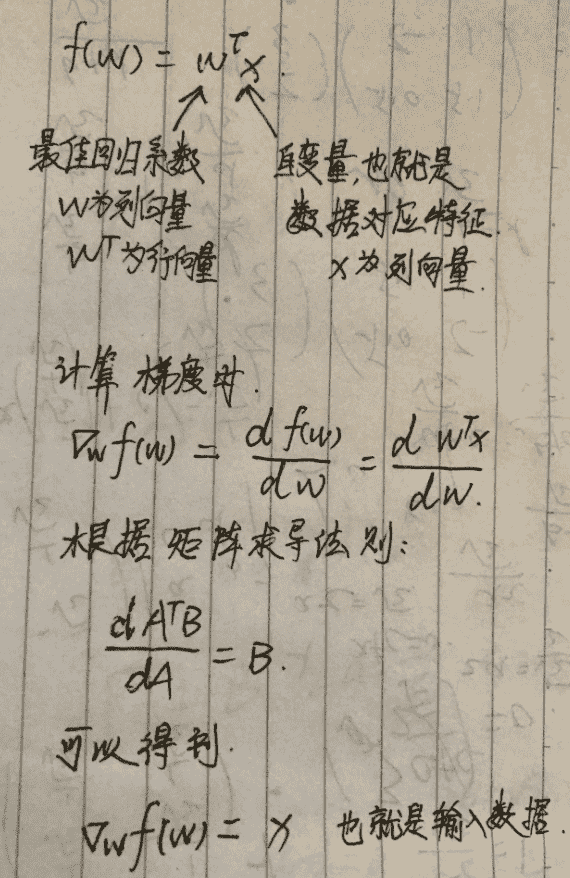 f(w) = wᵀx.
最佳回归系数
w为列向量
wᵀ为行向量
自变量,也就是
数据对应特征.
x为列向量.
计算梯度时.
∇wf(w) = d f(w)/dw = d wᵀx/dw.
根据矩阵求导法则:
dAᵀB/dA = B.
可以得到.
∇wf(w) = x 也就是输入数据.